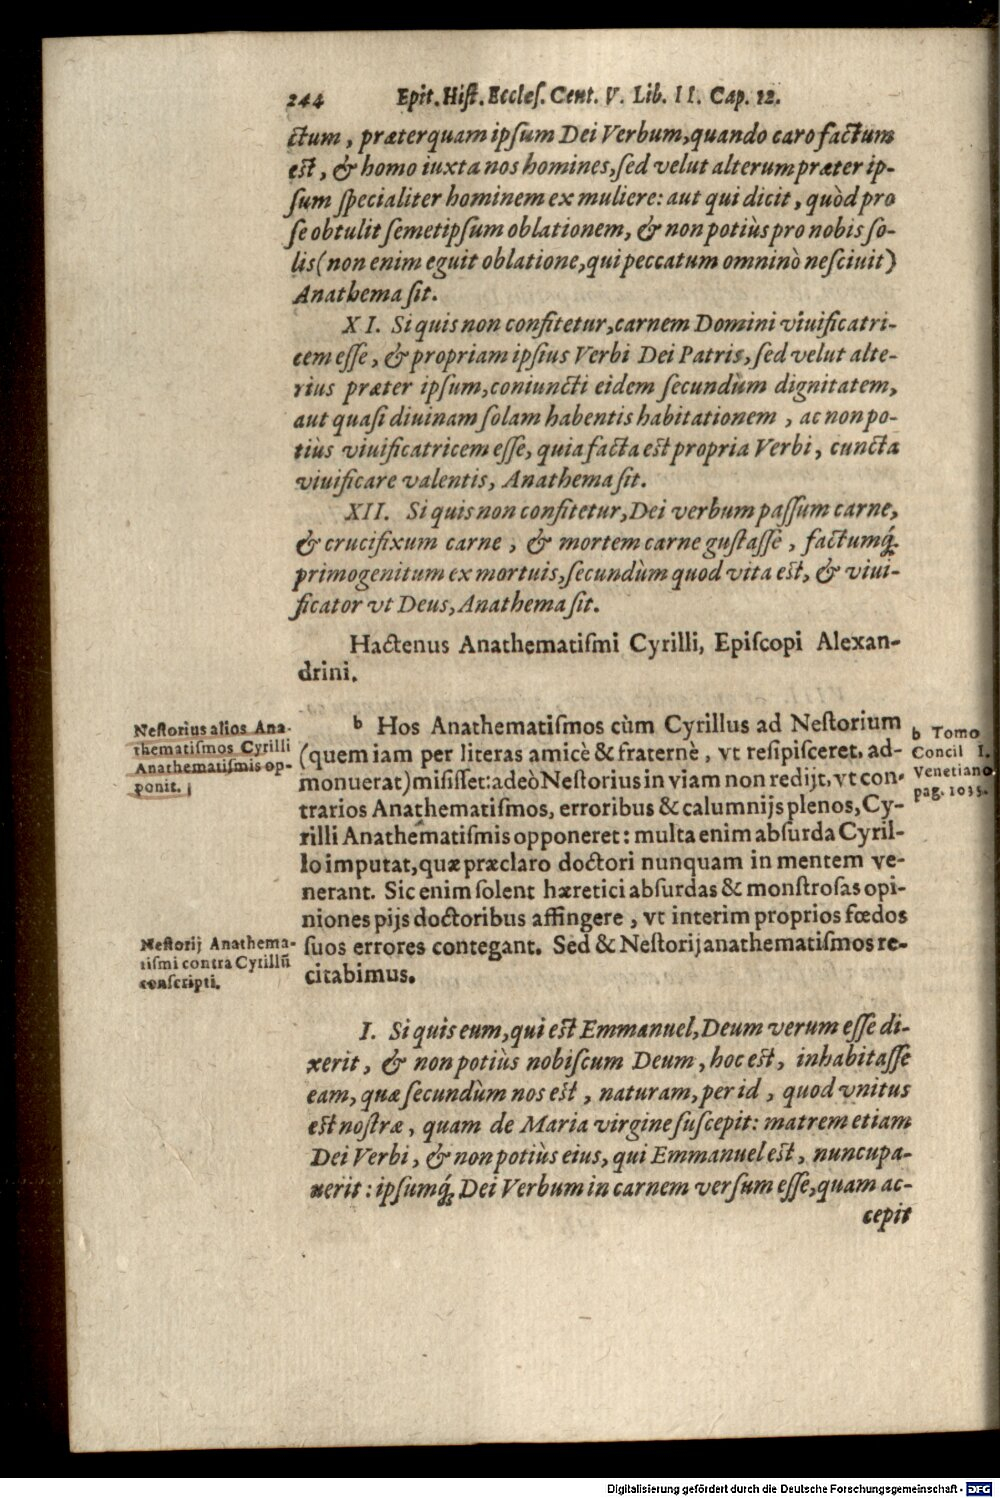 244 Epit. Hiſt. Eccleſ. Cent. V. Lib. II. Cap. 12.
ctum, præterquam ipſum Dei Verbum, quando caro factum
est, & homo iuxta nos homines, ſed velut alterum præter ip-
ſum ſpecialiter hominem ex muliere: aut qui dicit, quòd pro
ſe obtulit ſemetipſum oblationem, & non potiùs pro nobis ſo-
lis (non enim eguit oblatione, qui peccatum omninò neſciuit)
Anathema ſit.
XI. Si quis non confitetur, carnem Domini viuificatri-
cem eſſe, & propriam ipſius Verbi Dei Patris, ſed velut alte-
rius præter ipſum, coniuncti eidem ſecundùm dignitatem,
aut quaſi diuinam ſolam habentis habitationem, ac non po-
tiùs viuificatricem eſſe, quia facta est propria Verbi, cuncta
viuificare valentis, Anathema ſit.
XII. Si quis non confitetur, Dei verbum paſſum carne,
& crucifixum carne, & mortem carne guſtaſſe, factumq́;
primogenitum ex mortuis, ſecundùm quod vita est, & viui-
ficator vt Deus, Anathema ſit.
Hactenus Anathematiſmi Cyrilli, Epiſcopi Alexan-
drini.
Neſtorius alios Ana-
thematiſmos Cyrilli
Anathematiſmis op-
ponit.
b Hos Anathematiſmos cùm Cyrillus ad Neſtorium
(quem iam per literas amicè & fraternè, vt reſipiſceret, ad-
monuerat) miſiſſet: adeò Neſtorius in viam non redijt, vt con-
trarios Anathematiſmos, erroribus & calumnijs plenos, Cy-
rilli Anathematiſmis opponeret: multa enim abſurda Cyril-
lo imputat, quæ præclaro doctori nunquam in mentem ve-
nerant. Sic enim ſolent hæretici abſurdas & monſtroſas opi-
niones pijs doctoribus affingere, vt interim proprios fœdos
ſuos errores contegant. Sed & Neſtorij anathematiſmos re-
citabimus.
b Tomo
Concil I.
Venetiano
pag. 1035.
Neſtorij Anathema-
tiſmi contra Cyrillũ
conſcripti.
I. Si quis eum, qui est Emmanuel, Deum verum eſſe di-
xerit, & non potiùs nobiſcum Deum, hoc est, inhabitaſſe
eam, quæ ſecundùm nos est, naturam, per id, quod vnitus
est noſtræ, quam de Maria virgine ſuſcepit: matrem etiam
Dei Verbi, & non potiùs eius, qui Emmanuel est, nuncupa-
uerit: ipſumq́; Dei Verbum in carnem verſum eſſe, quam ac-
cepit
Digitalisierung gefördert durch die Deutsche Forschungsgemeinschaft - DFG